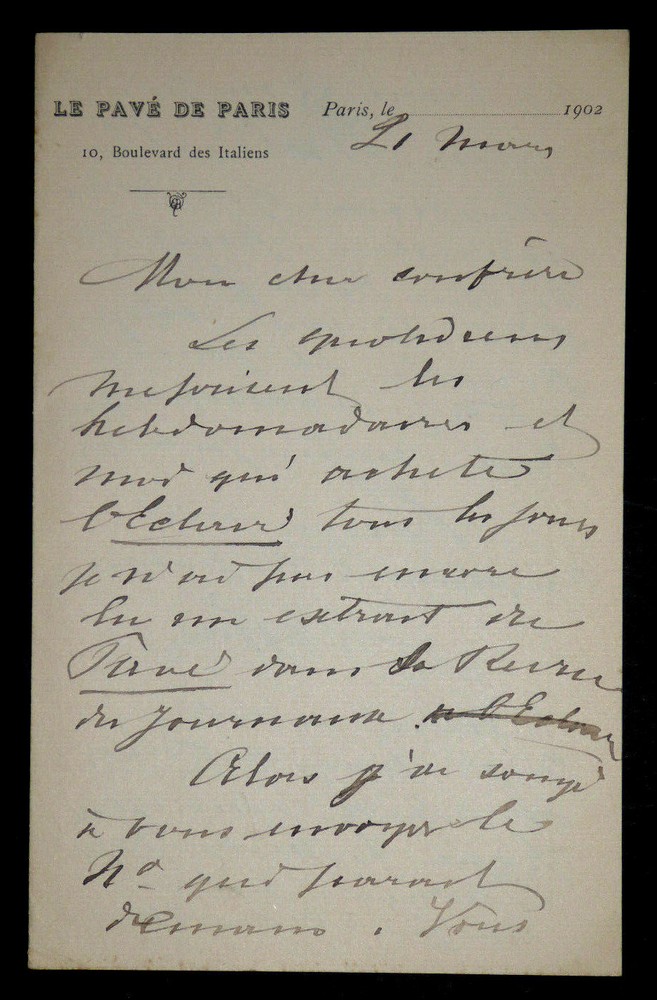 LE PAVÉ DE PARIS
Paris, le 1902
21 Mars
10, Boulevard des Italiens
Mon cher confrère
Les quotidiens
méprisent les
hebdomadaires et
moi qui achète
l'Eclair tous les jours
je n'ai pas encore
lu un extrait du
Pavé dans la Revue
des Journaux. de l'Eclair
Alors j'ai songé
à vous envoyer le
N° qui parait
demain. Vous